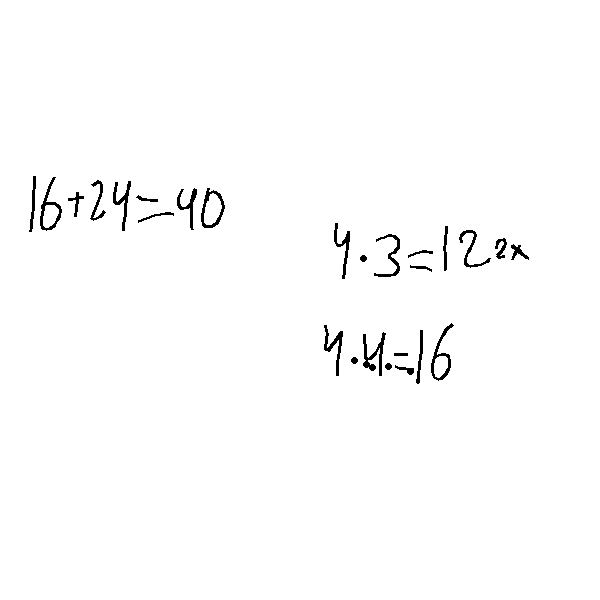 16+24=40
4·3=12 2x
4·4=16